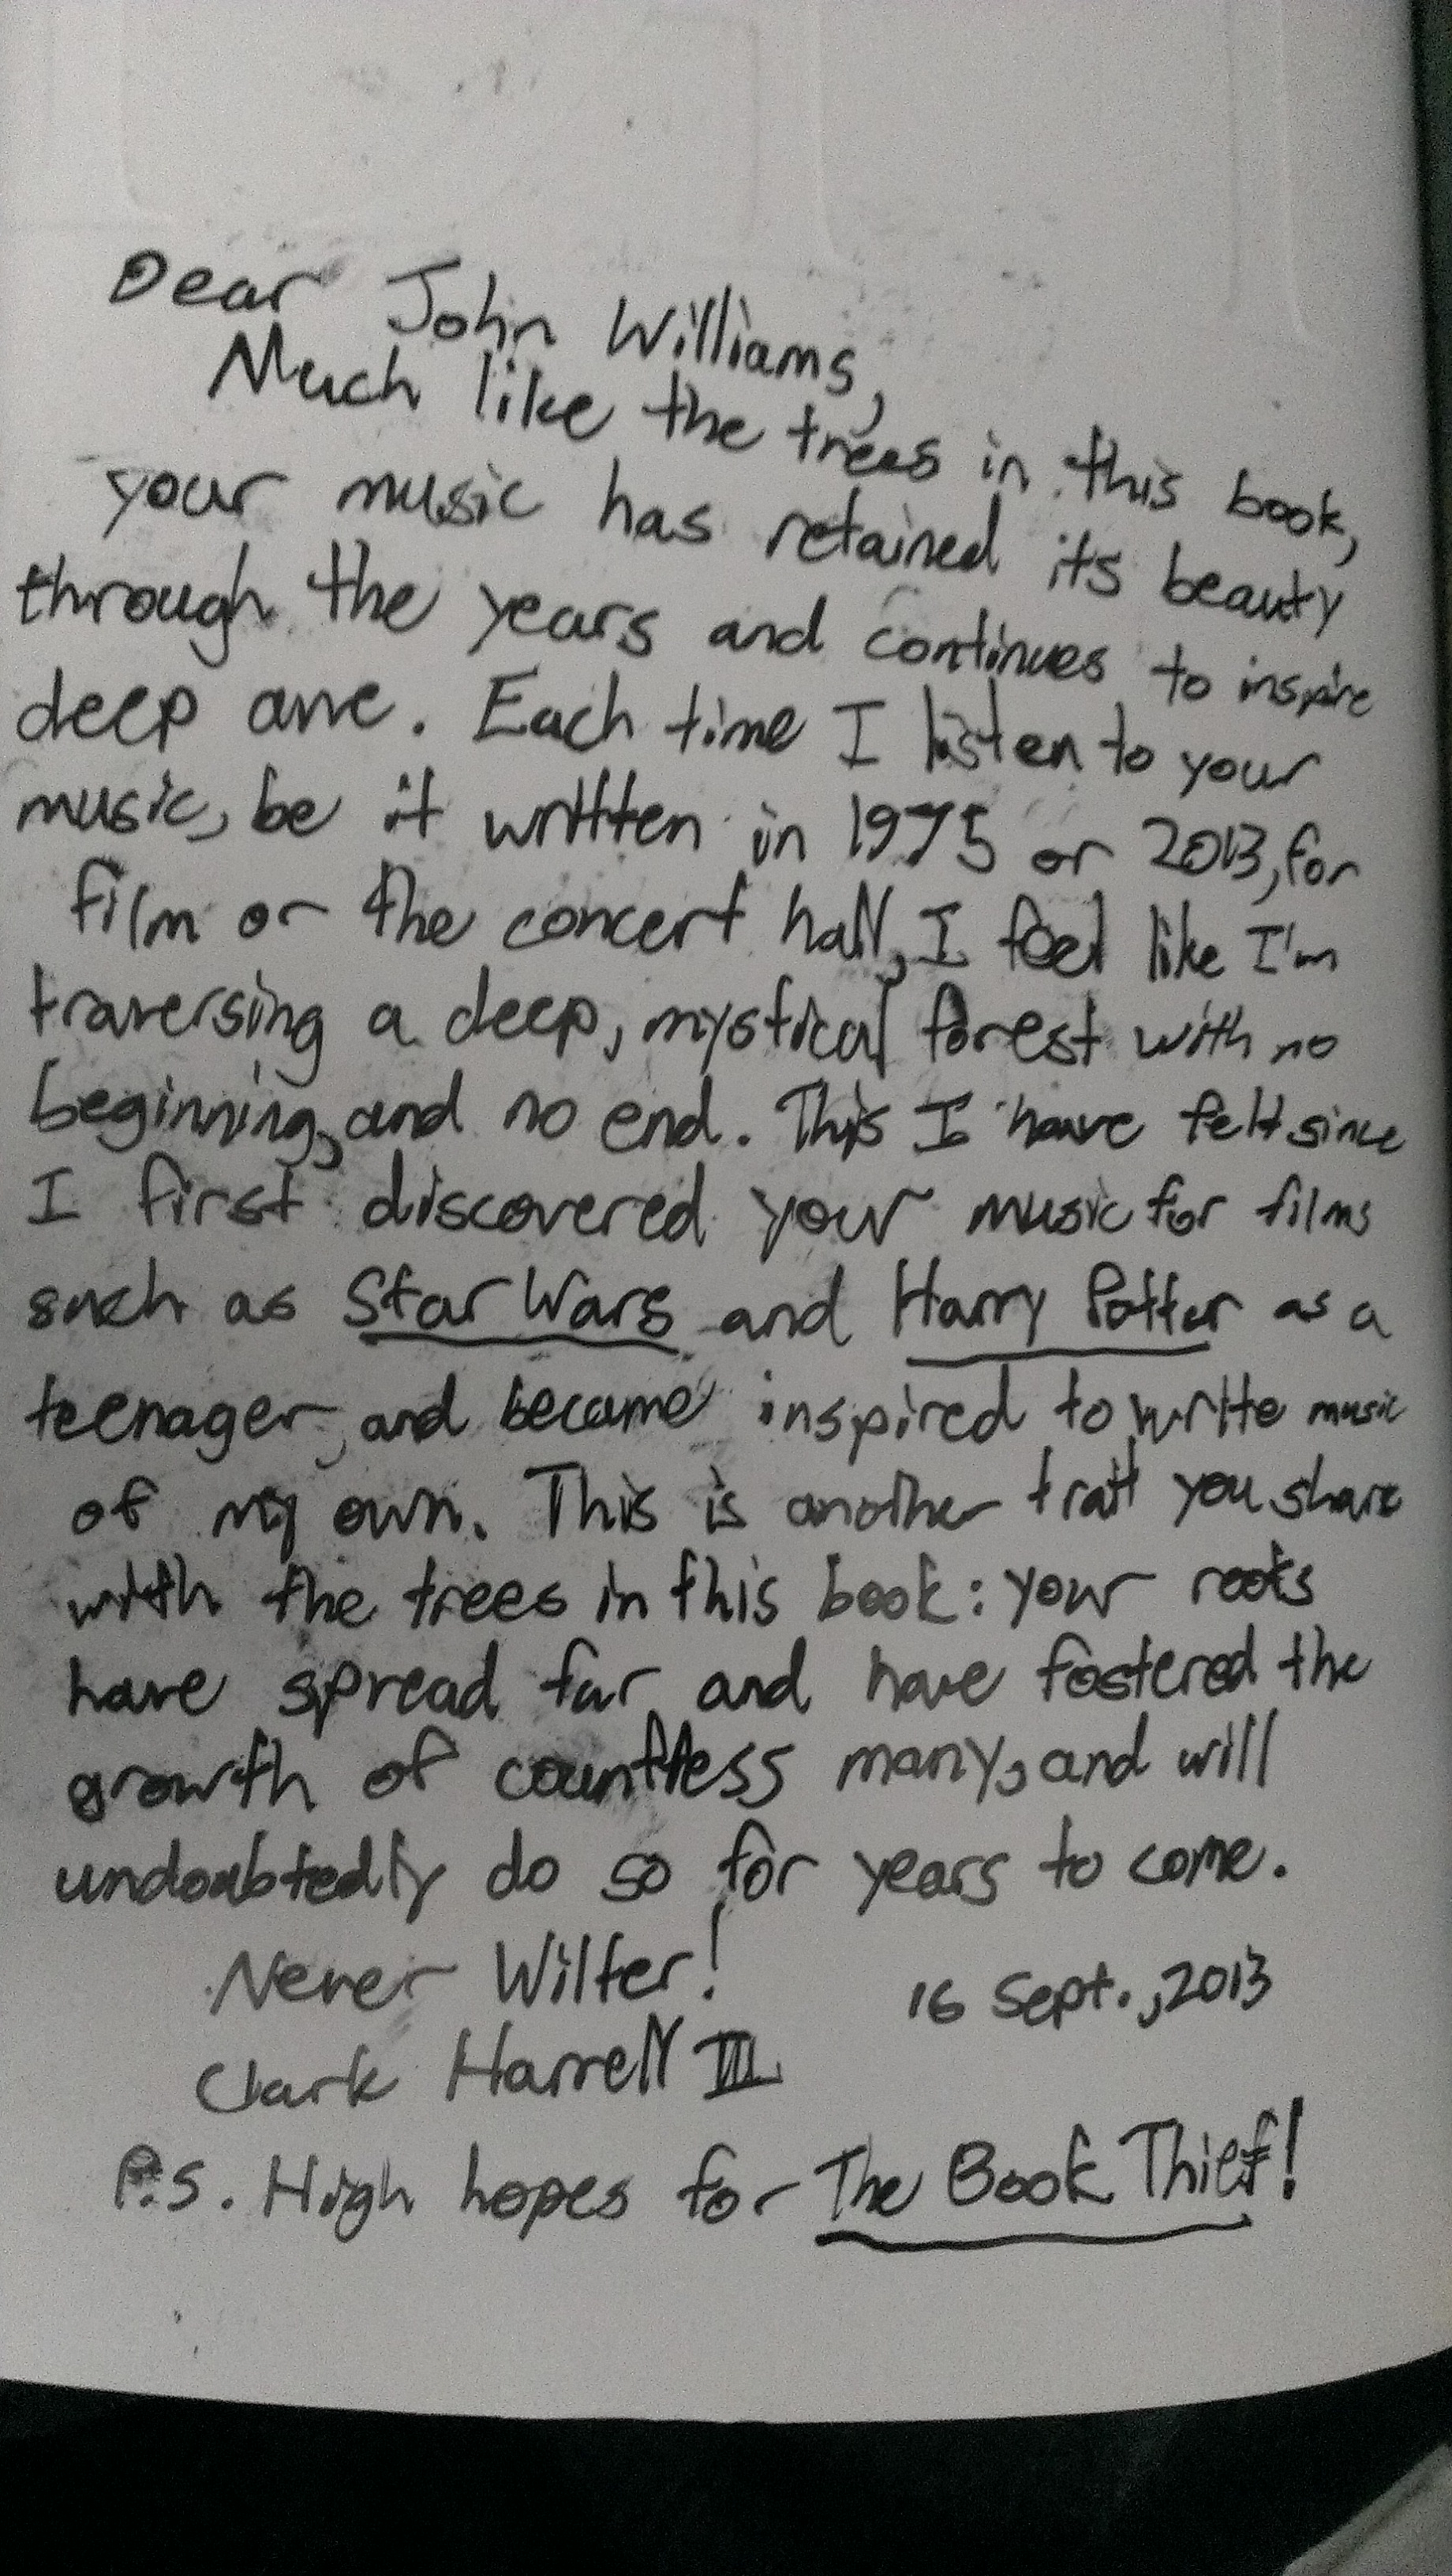 Dear John Williams,
Much like the trees in this book,
your music has retained its beauty
through the years and continues to inspire
deep awe. Each time I listen to your
music, be it written in 1975 or 2013, for
film or the concert hall, I feel like I'm
traversing a deep, mystical forest with no
beginning, and no end. This I have felt since
I first discovered your music for films
such as Star Wars and Harry Potter as a
teenager, and became inspired to write music
of my own. This is another trait you share
with the trees in this book: your roots
have spread far and have fostered the
growth of countless many, and will
undoubtedly do so for years to come.
Never Wilter!
16 Sept., 2013
Clark Harrell III
P.S. High hopes for The Book Thief!